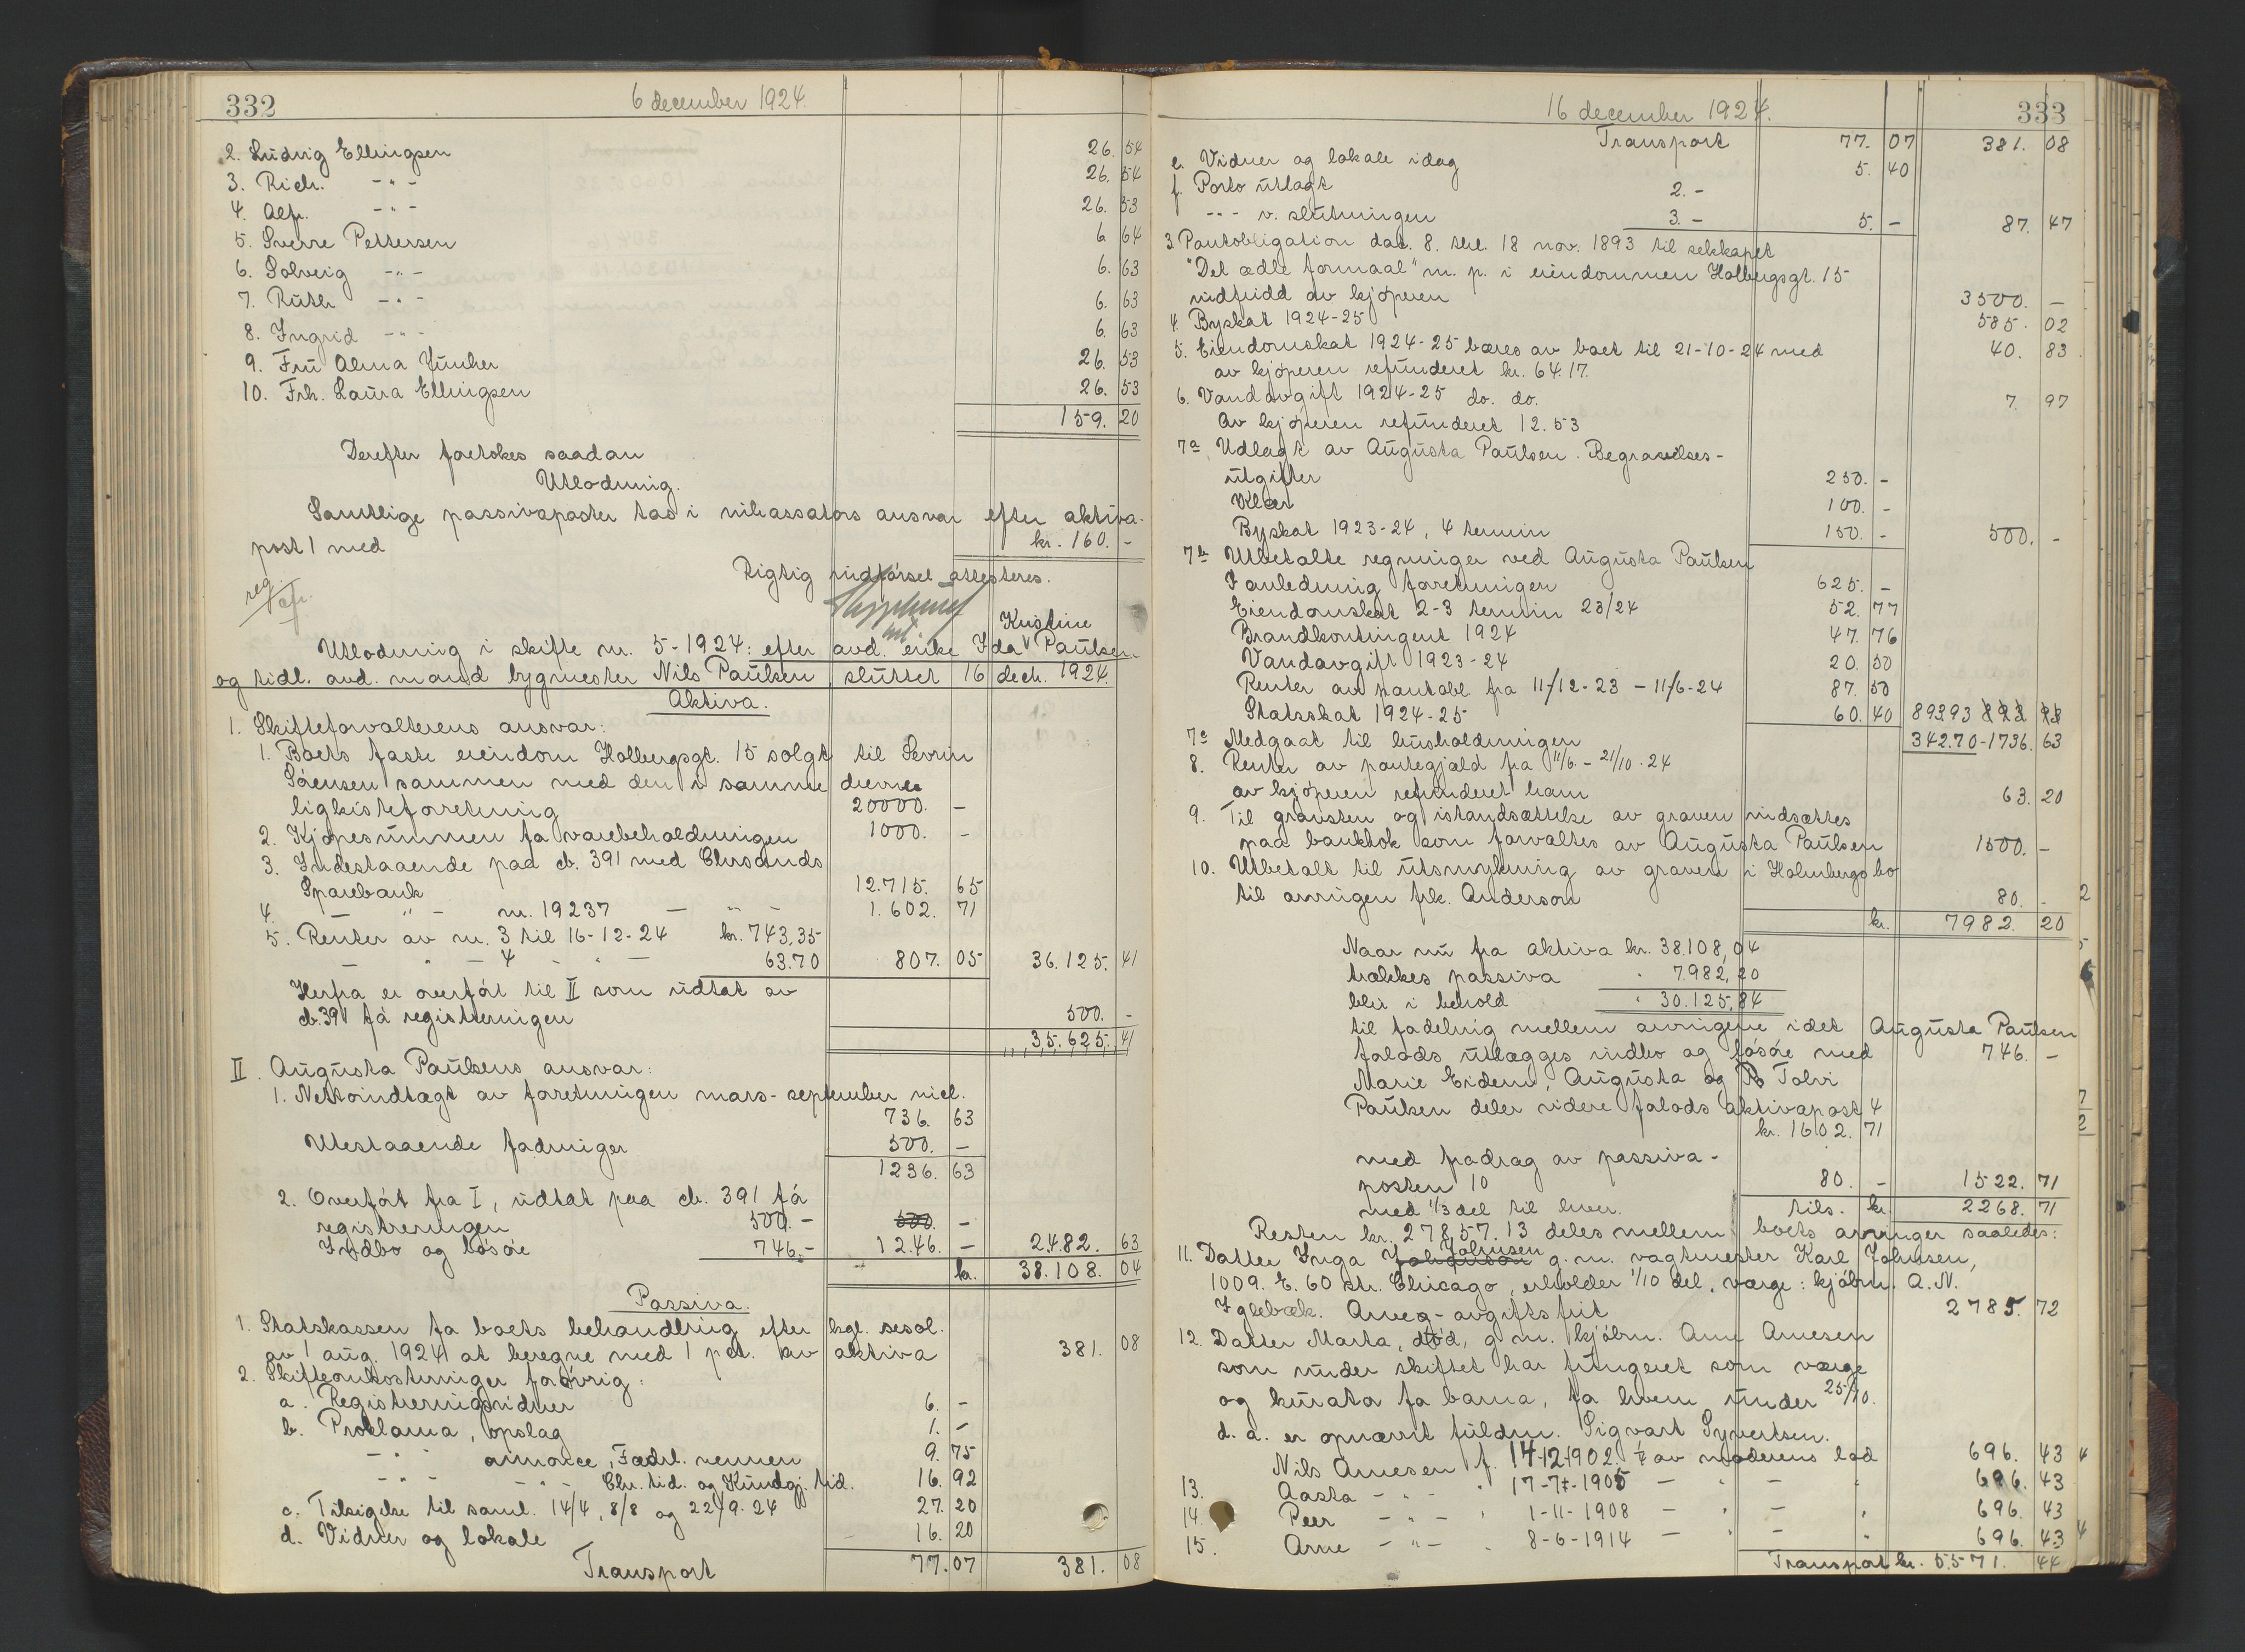 332
6 december 1924.
2. Ludvig Ellingsen 26. 54
3. Rich. -"- 26. 54
4. Alfr. -"- 26. 53
5. Sverre Pettersen 6. 64
6. Solveig -"- 6. 63
7. Ruth -"- 6. 63
8. Ingrid -"- 6. 63
9. Fru Alma Junker 26. 53
10. Frk. Laura Ellingsen 26. 53
159. 20
Derefter foretokes saadan
Utlodning.
Samtlige passivaposter tas i inkassators ansvar efter aktiva-
post 1 med kr. 160. -
Rigtig indførsel attesteres.
reg.
Kristine
Utlodning i skifte nr. 5-1924: efter avd. enke Ida Paulsen
og tidl. avd. mand bygmester Nils Paulsen, sluttet 16 decb. 1924.
Aktiva.
1. Skifteforvalterens ansvar:
1. Boets faste eiendom Holbergsgt. 15 solgt til Severin
Sörensen sammen med den i samme drevne
ligkisteforretning 20000. -
2. Kjøpesummen for varebeholdningen 1000. -
3. Indestaaende paa cb. 391 med Chrsands
Sparebank 12.715. 65
4. - " - nr. 19237 - " - 1.602. 71
5. Renter av nr. 3 til 16-12-24 kr. 743,35
- " - 4 - " - 63.70 807. 05 36.125. 41
Herfra er overført til II som udtat av
cb. 391 før registreringen 500. -
35.625. 41
II. Augusta Paulsens ansvar:
1. Nettoindtægt av forretningen mars-september incl.
736. 63
Utestaaende fordringer 500. -
1236. 63
2. Overført fra I, udtat paa cb. 391 før
registreringen 500. - 500. -
Indbo og løsøre 746. - 1246. - 2482. 63
kr. 38.108. 04
Passiva.
1. Statskassen for boets behandling efter kgl. resol.
av 1 aug. 1924 at beregne med 1 pct. av aktiva 381. 08
2. Skifteomkostninger forøvrig:
a. Registreringsvidner 6. -
b. Proklama, opslag 1. -
-"- annonce, Fædrl. vennen 9. 75
-"- -"- Chr. tid. og Kundgj. tid. 16. 92
c. Tilsigelse til saml. 14/4, 8/8 og 22/9-24 27. 20
d. Vidner og lokale 16. 20
Transport 77. 07 381. 08
16 december 1924.
333
Transport 77. 07 381. 08
e. Vidner og lokale idag 5. 40
f. Porto utlagt 2. -
-"- v. slutningen 3. - 5. - 87. 47
3. Pantobligation dat. 8. tbl. 18 nov. 1893 til selskapet
"Det ædle formaal" m. p. i eiendommen Holbergsgt. 15
indfridd av kjøperen 3500. -
4. Byskat 1924-25 585. 02
5. Eiendomskat 1924-25 bæres av boet til 21-10-24 med 40. 83
av kjøperen refunderet kr. 64.17.
6. Vandavgift 1924-25 do. do. 7. 97
av kjøperen refunderet 12.53
7a Udlagt av Augusta Paulsen. Begravelses-
utgifter 250. -
Klær 100. -
Byskat 1923-24, 4 termin 150. - 500. -
7b Utbetalte regninger ved Augusta Paulsen
I anledning forretningen 625. -
Eiendomskat 2-3 termin 23/24 52. 77
Brandkontingent 1924 47. 76
Vandavgift 1923-24 20. 50
Renter av pantobl fra 11/12-23 - 11/6-24 87. 50
Statsskat 1924-25 60. 40 893.93
7c Medgaat til husholdningen 342.70 - 1736. 63
8. Renter av pantegjæld fra 11/6 - 21/10-24
av kjøperen refunderet ham 63. 20
9. Til gravsten og istandsættelse av graven indsættes
paa bankbok som forvaltes av Augusta Paulsen 1500. -
10. Utbetalt til utsmykning av graven i Holmbergs bo
til arvingen frk. Anderson 80. -
kr. 7982. 20
Naar nu fra aktiva kr. 38.108,04
trækkes passiva " 7.982,20
blir i behold " 30.125,84
til fordeling mellem arvingene idet Augusta Paulsen
forlods utlægges indbo og løsøre med 746. -
Marie Eidem, Augusta og Tolvi
Paulsen deler videre forlods aktivapost 4
kr. 1602. 71
med fradrag av passiva-
posten 10 80. - 1522. 71
med 1/3 del til hver. tils. kr. 2268. 71
Resten kr. 27857.13 deles mellem boets arvinger saaledes:
11. Datter Inga Johnsen g. m. vagtmester Karl Johnsen,
1009. E. 60 str. Chicago, erholder 1/10 del. værge: kjøbm. A. N.
Iglebæk. Arveavgiftsfrit 2785. 72
12. Datter Marta, død, g. m. kjøbm. Arne Arnesen
som under skiftet har fungeret som værge
og kurator for barna, for hvem under 25/10.
d. a. er opnævnt fuldm. Sigvart Syvertsen.
Nils Arnesen f. 14-12-1902. 1/4 av moderens lod 696. 43
13. Aasta -"- " 17-7-1905 - " - " 696. 43
14. Peer -"- " 1-11-1908 - " - " 696. 43
15. Arne -"- " 8-6-1914 - " - " 696. 43
Transport kr. 5.571. 44